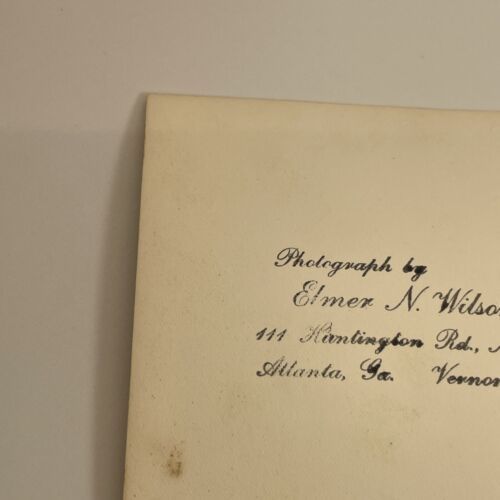 Photograph by
Elmer N. Wilso
111 Huntington Rd.,
Atlanta, Ga. Vernon